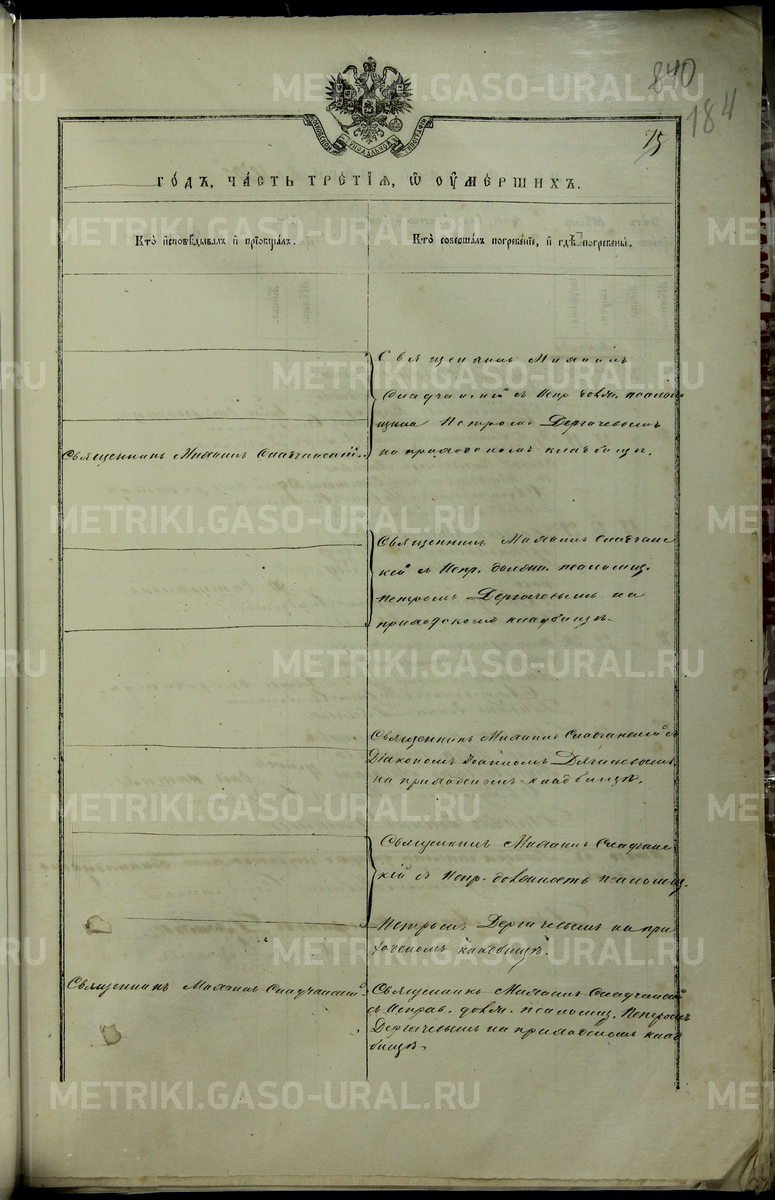 840
184
75
ГО́ДЪ, ЧА́СТЬ ТРЕ́ТІѦ, Ѽ ОУ҆МЕ́РШИХЪ.
Кто̀ и҆сповѣ́дывалъ и҆ прїѡбща́лъ.
Кто̀ соверша́лъ погребе́нїе, и҆ гдѣ̀ погребены̀.
Священникъ Михаилъ
Сладчанскій съ Испр. должн. псалом
щика Петромъ Дергачевымъ
на приходскомъ кладбищѣ.
Священникъ Михаилъ Сладчанскій
Священникъ Михаилъ Сладчанс
кій съ Испр. должн. псаломщ.
Петромъ Дергачевымъ на
приходскомъ кладбищѣ.
Священникъ Михаилъ Сладчанскій съ
Діакономъ Іоанномъ
на приходскомъ кладбищѣ.
Священникъ Михаилъ Сладчанс
кій съ Испр. должность псаломщ.
Петромъ Дергачевымъ на при
ходскомъ кладбищѣ.
Священникъ Михаилъ Сладчанскій
Священникъ Михаилъ Сладчанскій
съ Исправ. должн. псаломщ. Петромъ
Дергачевымъ на приходскомъ клад
бищѣ.
METRIKI.GASO-URAL.RU